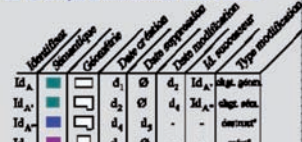 Identifiant Sémantique Géométrie Date création Date suppression Date modification Id. successeur Type modification
Id_A d₁ Ø d₂ Id_A' chgt. géom.
Id_A' d₂ Ø d₄ Id_A'' chgt. sém.
Id_A'' d₄ d₅ - - destruct°
Id